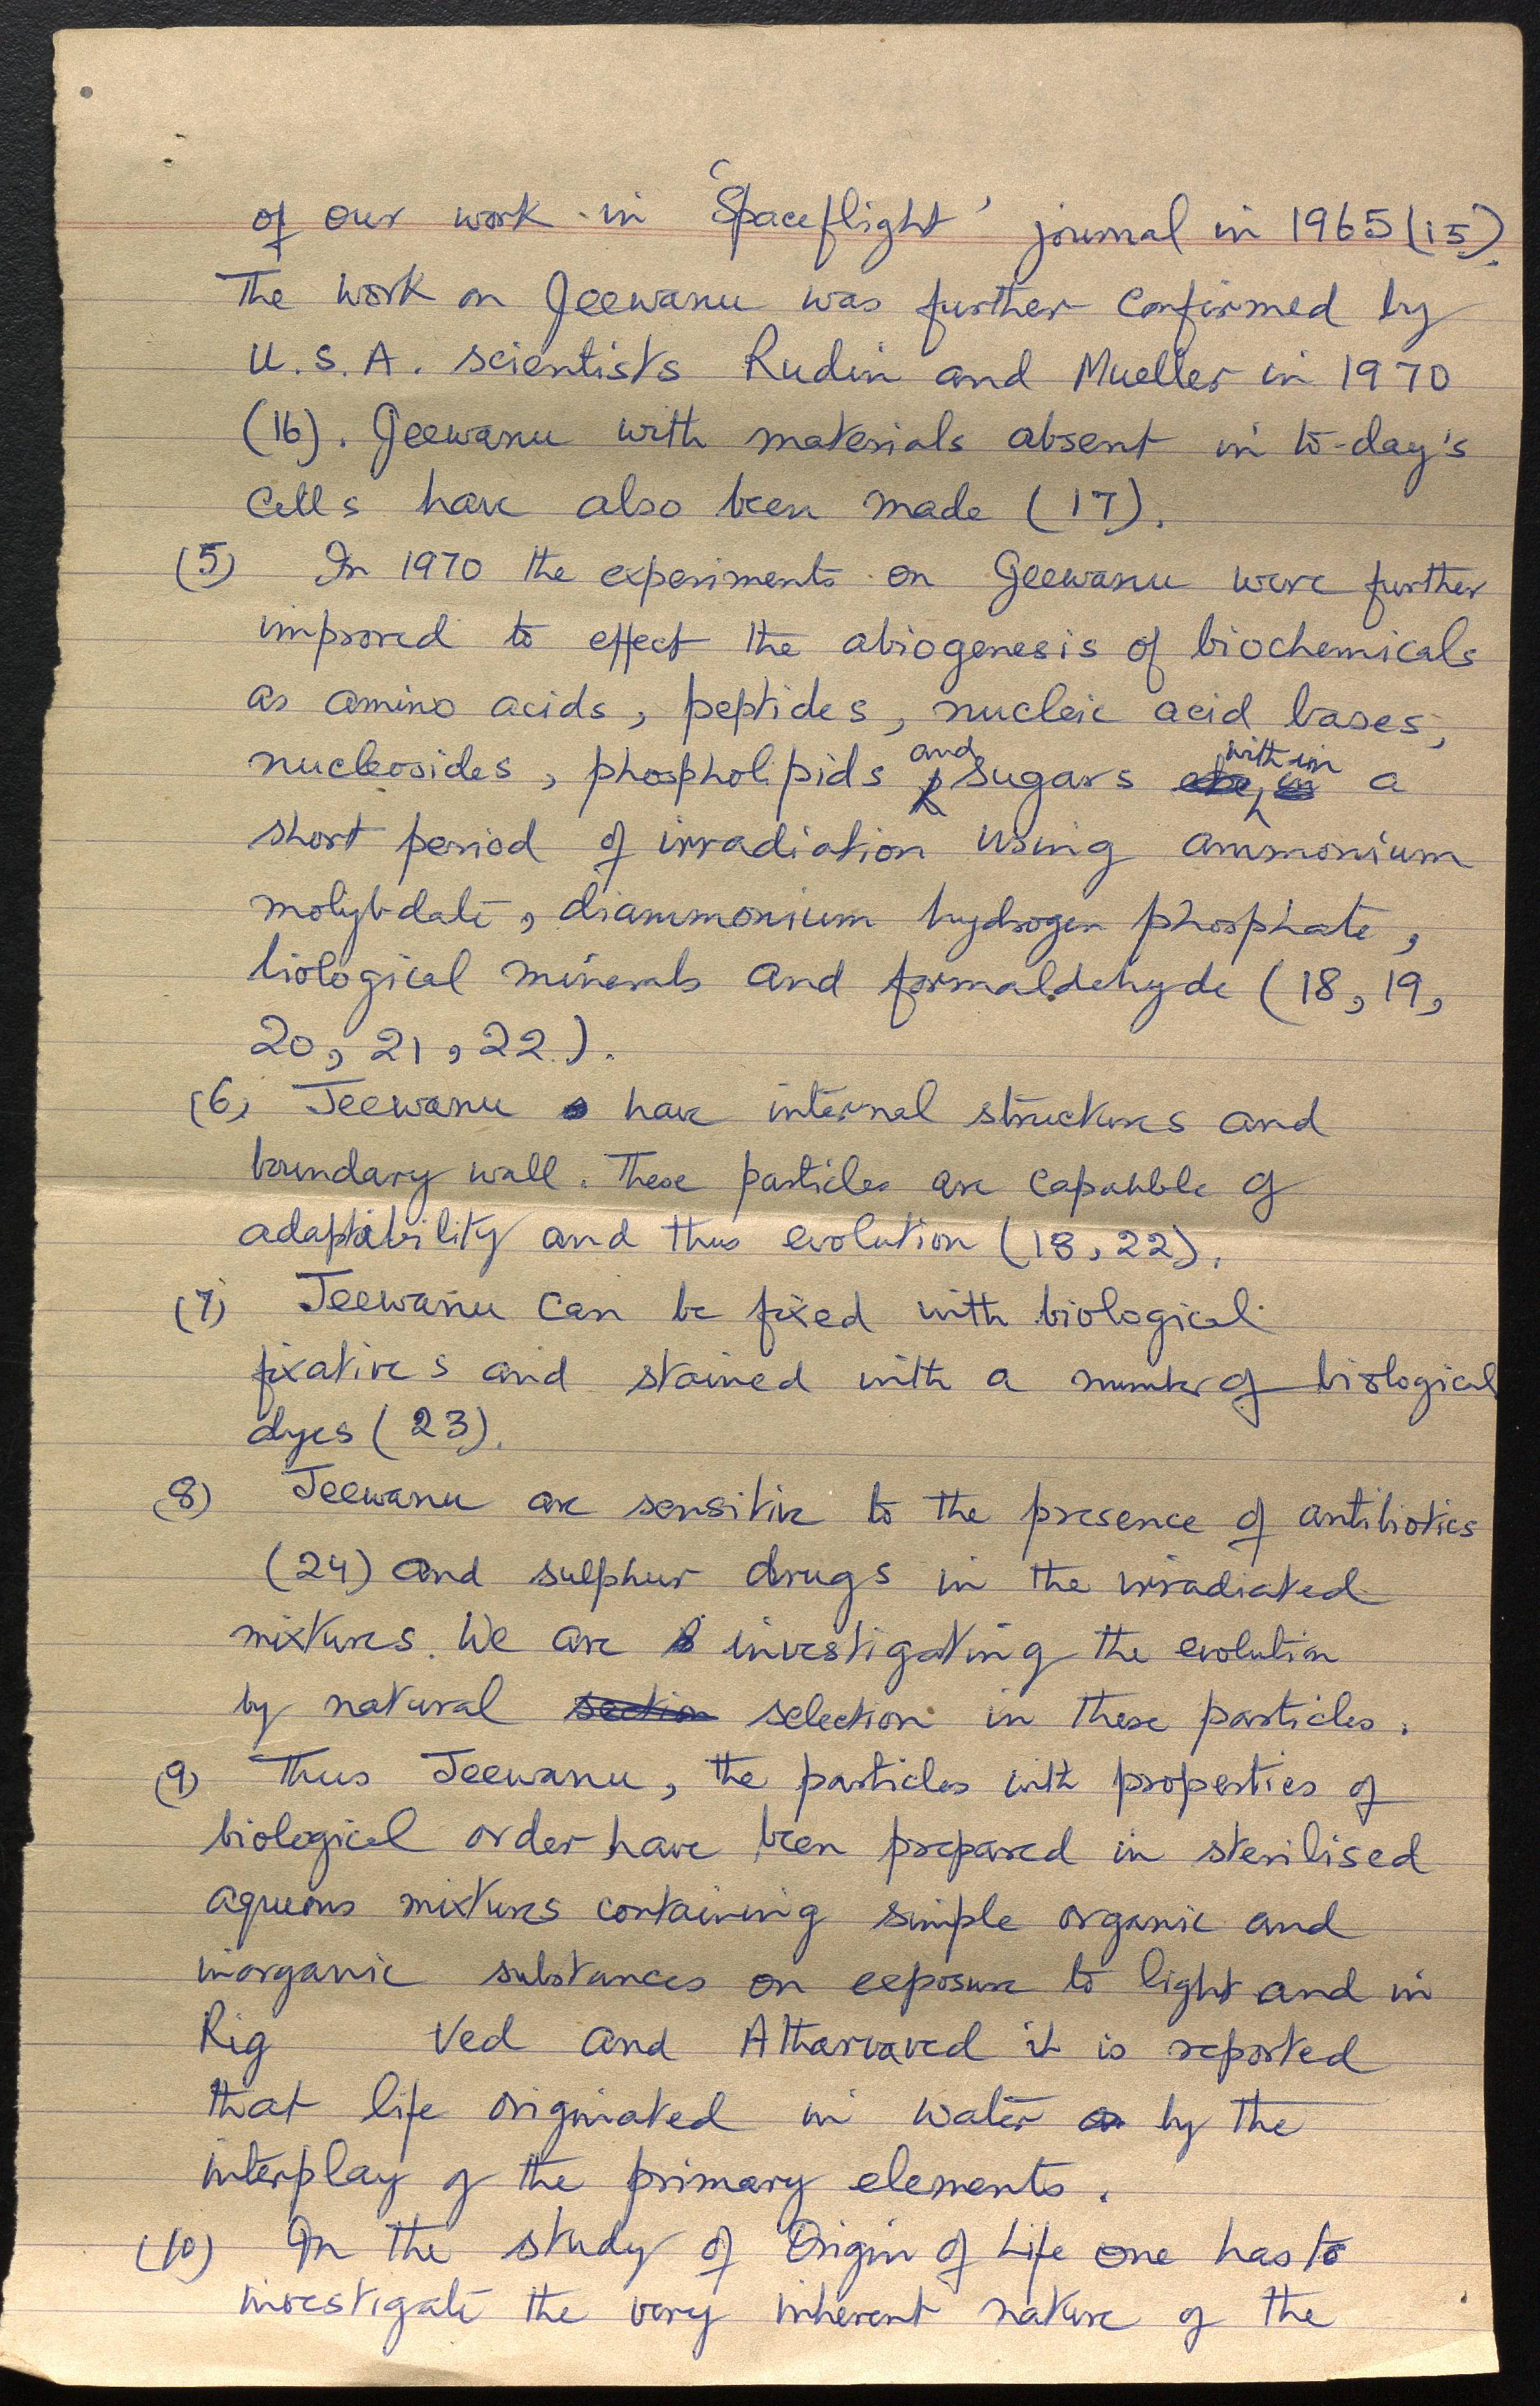 of our work in 'Spaceflight' journal in 1965 (15).
The work on Jeewanu was further confirmed by
U.S.A. scientists Rudin and Mueller in 1970
(16). Jeewanu with materials absent in to-day's
cells have also been made (17).
(5) In 1970 the experiments on Jeewanu were further
improved to effect the abiogenesis of biochemicals
as amino acids, peptides, nucleic acid bases,
nucleosides, phospholipids and sugars within a
short period of irradiation using ammonium
molybdate, diammonium hydrogen phosphate,
biological minerals and formaldehyde (18, 19,
20, 21, 22).
(6) Jeewanu have internal structures and
boundary wall. These particles are capabble of
adaptibility and thus evolution (18, 22).
(7) Jeewanu can be fixed with biological
fixatives and stained with a number of biological
dyes (23).
(8) Jeewanu are sensitive to the presence of antibiotics
(24) and sulphur drugs in the irradiated
mixtures. We are investigating the evolution
by natural section selection in these particles.
(9) Thus Jeewanu, the particles with properties of
biological order have been prepared in sterilised
aqueous mixtures containing simple organic and
inorganic substances on exposure to light and in
Rig Ved and Atharvaved it is reported
that life originated in water by the
interplay of the primary elements.
(10) In the study of Origin of Life one has to
investigate the very inherent nature of the